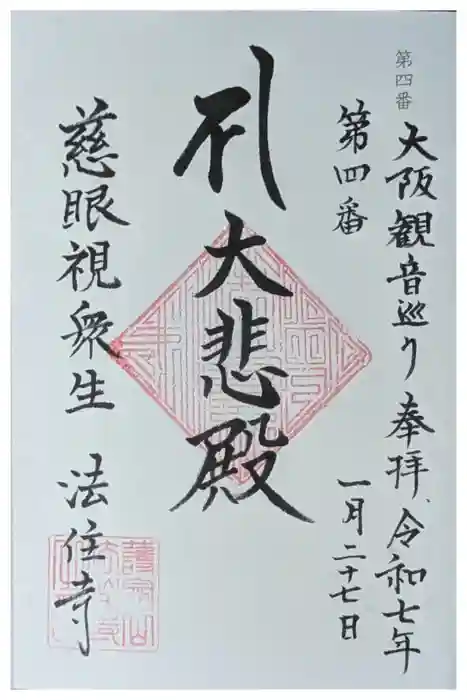 第四番
大阪観音巡り 奉拝、令和七年
第四番 一月二十七日
大悲殿
慈眼視衆生 法住寺